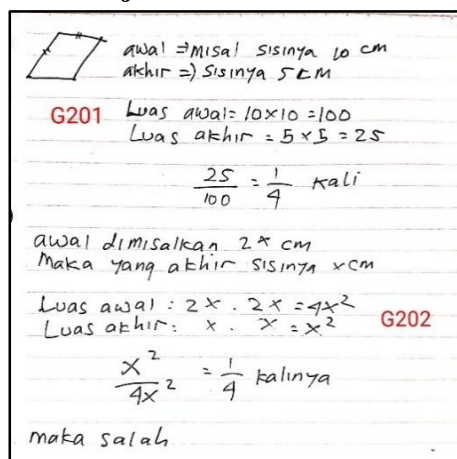 awal => misal sisinya 10 cm
akhir => sisinya 5 cm
G201 Luas awal = 10 x 10 = 100
Luas akhir = 5 x 5 = 25
25/100 = 1/4 kali
awal dimisalkan 2x cm
Maka yang akhir sisinya x cm
Luas awal : 2x . 2x = 4x²
Luas akhir : x . x = x² G202
x²/4x² = 1/4 kalinya
maka salah